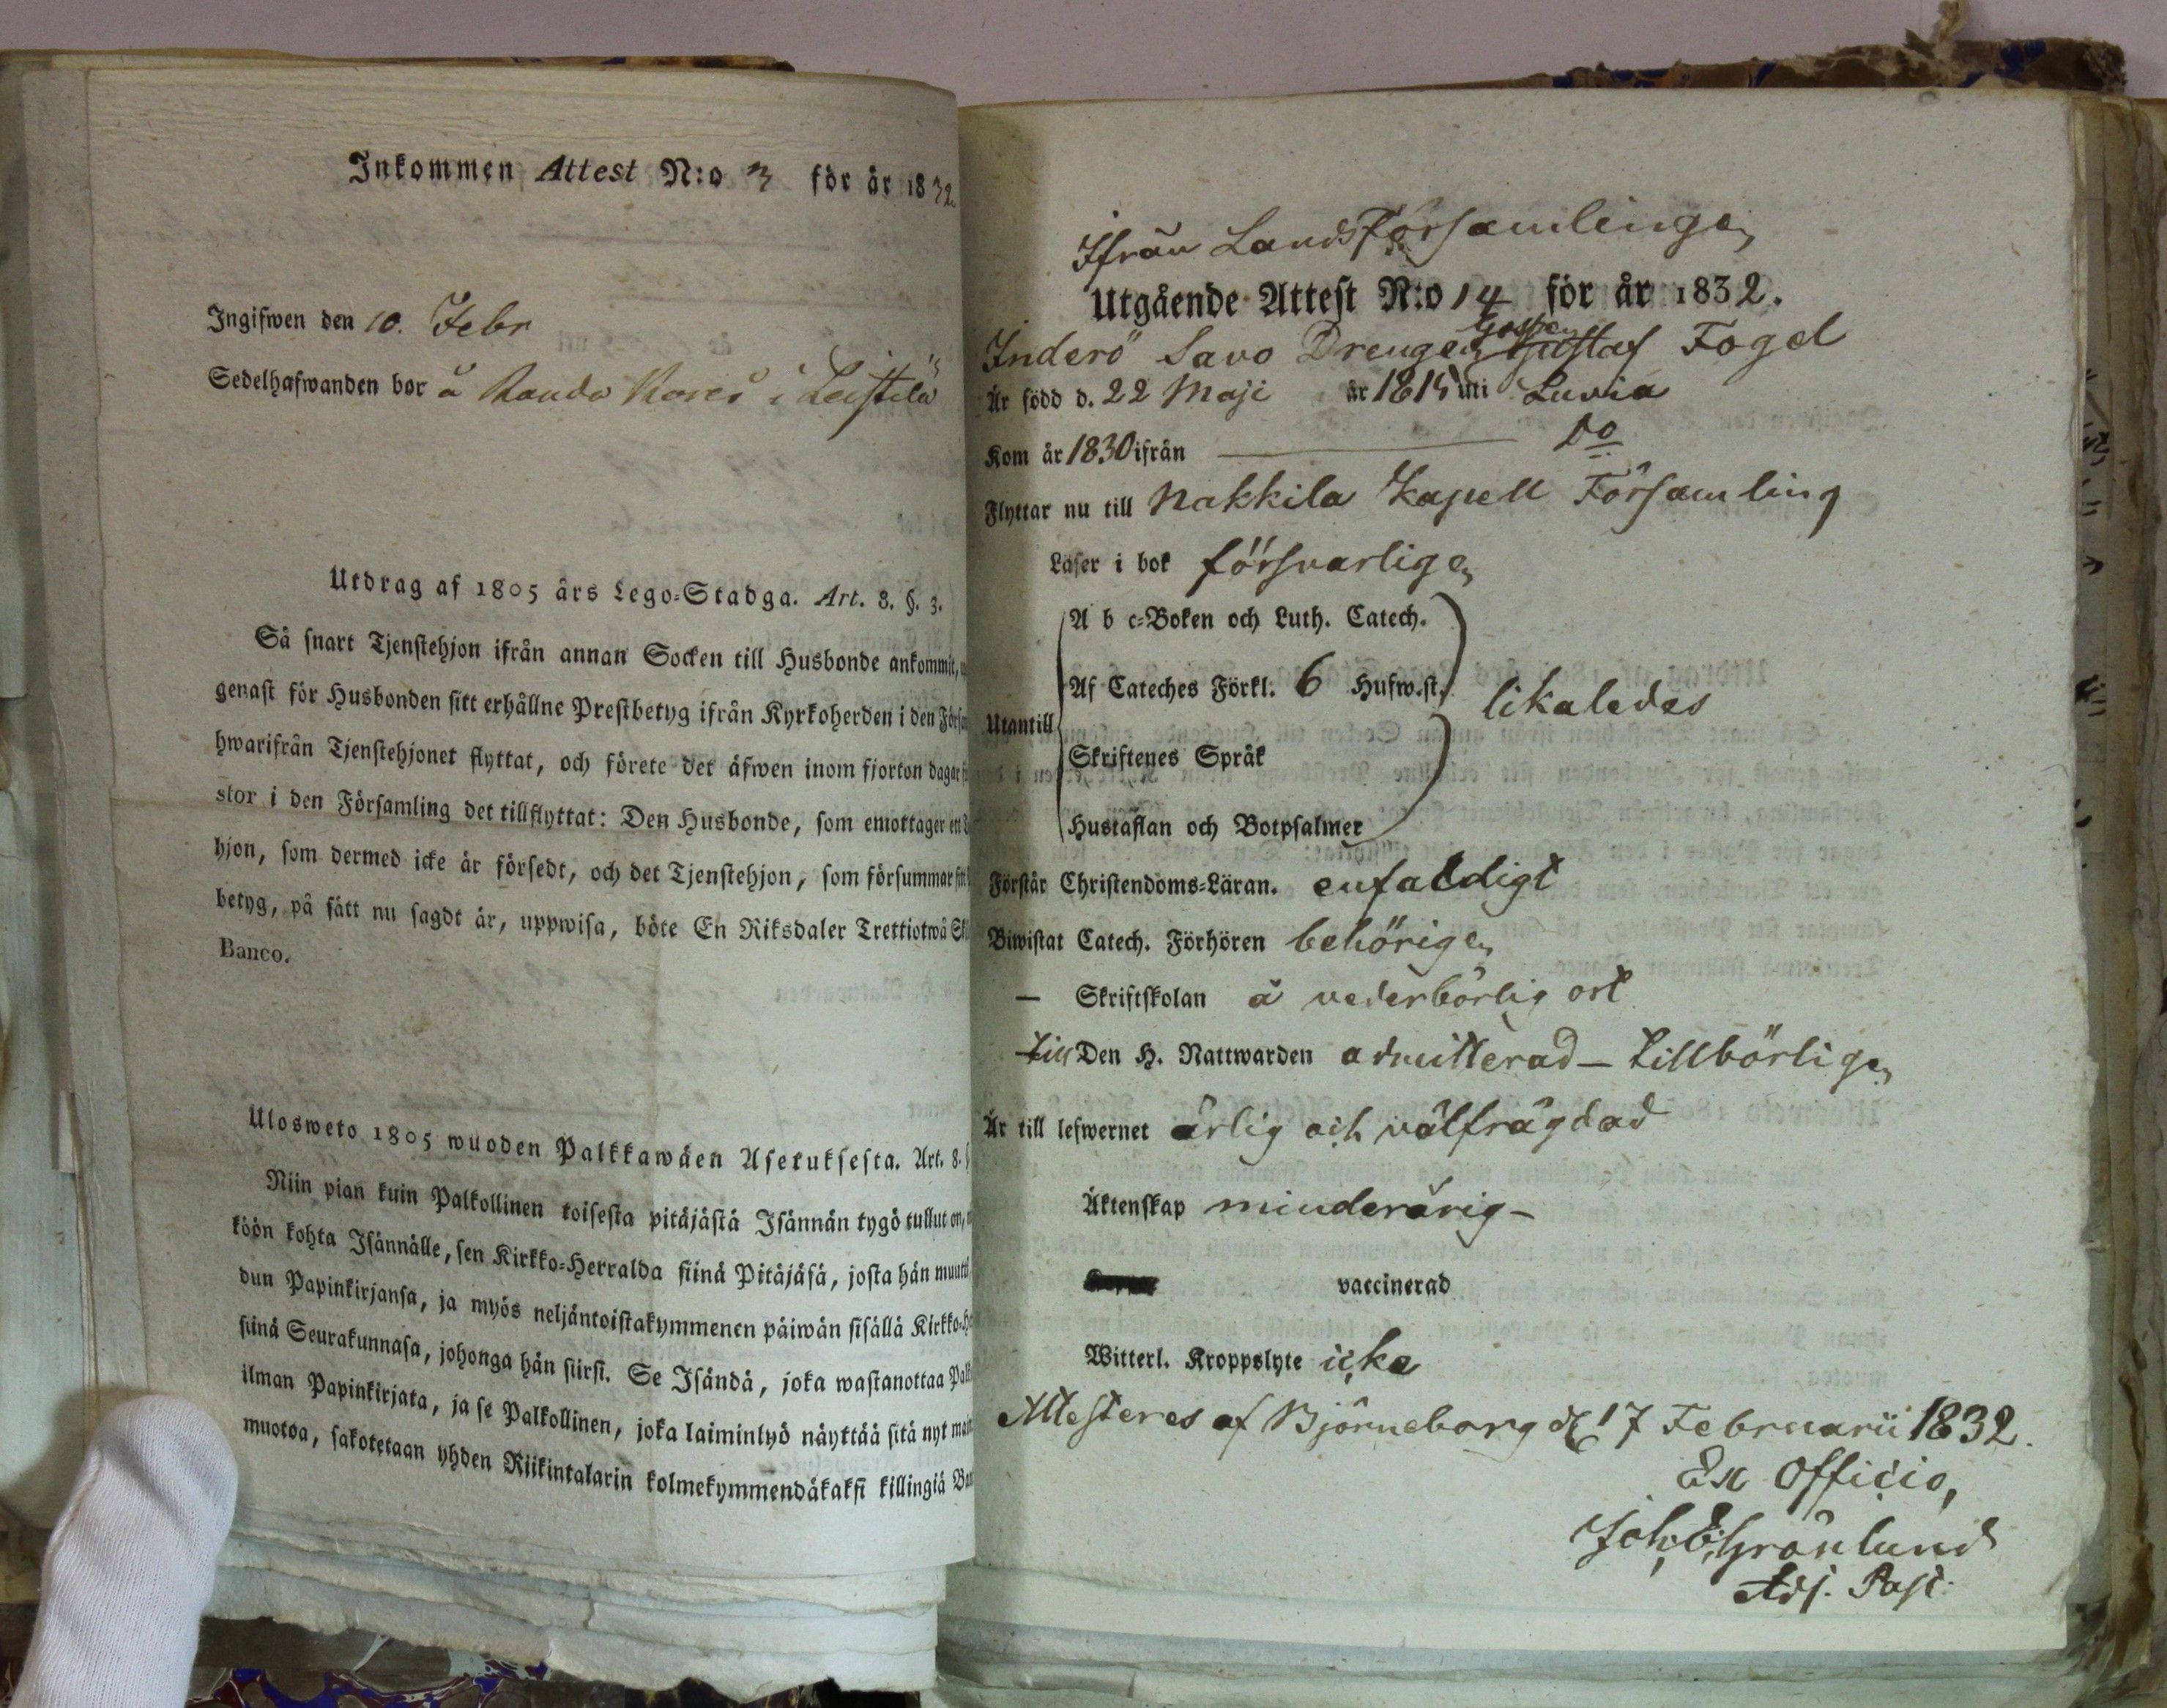 Inkommen Attest N:o 3 för år 1832.
Ingifwen den 10. Febr
Sedelhafwanden bor å i Leistilä
Utdrag af 1805 års Lego-Stadga. Art. 8. §. 3.
Så snart Tjenstehjon ifrån annan Socken till Husbonde ankommit,
genast för Husbonden sitt erhållne Prestbetyg ifrån Kyrkoherden i den
hwarifrån Tjenstehjonet flyttat, och förete det äfwen inom fjorton dagar
stor i den Församling det tillflyttat: Den Husbonde, som emottager ett
hjon, som dermed icke är försedt, och det Tjenstehjon, som försummar
betyg, på sätt nu sagdt är, uppwisa, böte En Riksdaler Trettiotwå
Banco.
Ulosweto 1805 wuoden Palkkawäen Asetuksesta. Art. 8.
Niin pian kuin Palkollinen toisesta pitäjästä Isännän tygö tullut on,
köön kohta Isännälle, sen Kirkko-Herralda siinä Pitäjäsä, josta hän
dun Papinkirjansa, ja myös neljäntoistakymmenen päiwän sisällä
siinä Seurakunnasa, johonga hän siirsi. Se Isändä, joka wastanottaa
ilman Papinkirjata, ja se Palkollinen, joka laiminlyö näyttää sitä nyt
muotoa, sakotetaan yhden Riikintalarin kolmekymmendäkaksi killingiä
Ifrån LandsFörsamlingen
Utgående Attest N:o 14 för år 1832.
Inderö Savo Drengen Gossen Gustaf Fogel
Är född d. 22 Maji år 1815 uti Luvia
Kom år 1830 ifrån Do
Flyttar nu till Nakkila Kapell Församling
Läser i bok försvarligen
Utantill
A b c-Boken och Luth. Catech.
Af Cateches Förkl. 6 Hufw.st.
Skriftenes Språk
Hustaflan och Botpsalmer
likaledes
Förstår Christendoms-Läran. enfaldigt
Biwistat Catech. Förhören behörigen
— Skriftskolan å vederbörlig ort
till Den H. Nattwarden admitterad – tillbörligen
Är till lefwernet ärlig och välfrägdad
Äktenskap minderårig –
vaccinerad
Witterl. Kroppslyte icke
Attesteres af Björneborg d. 17 Februarii 1832.
Ex Officio,
Joh. E. Grönlund
Adj. Past.